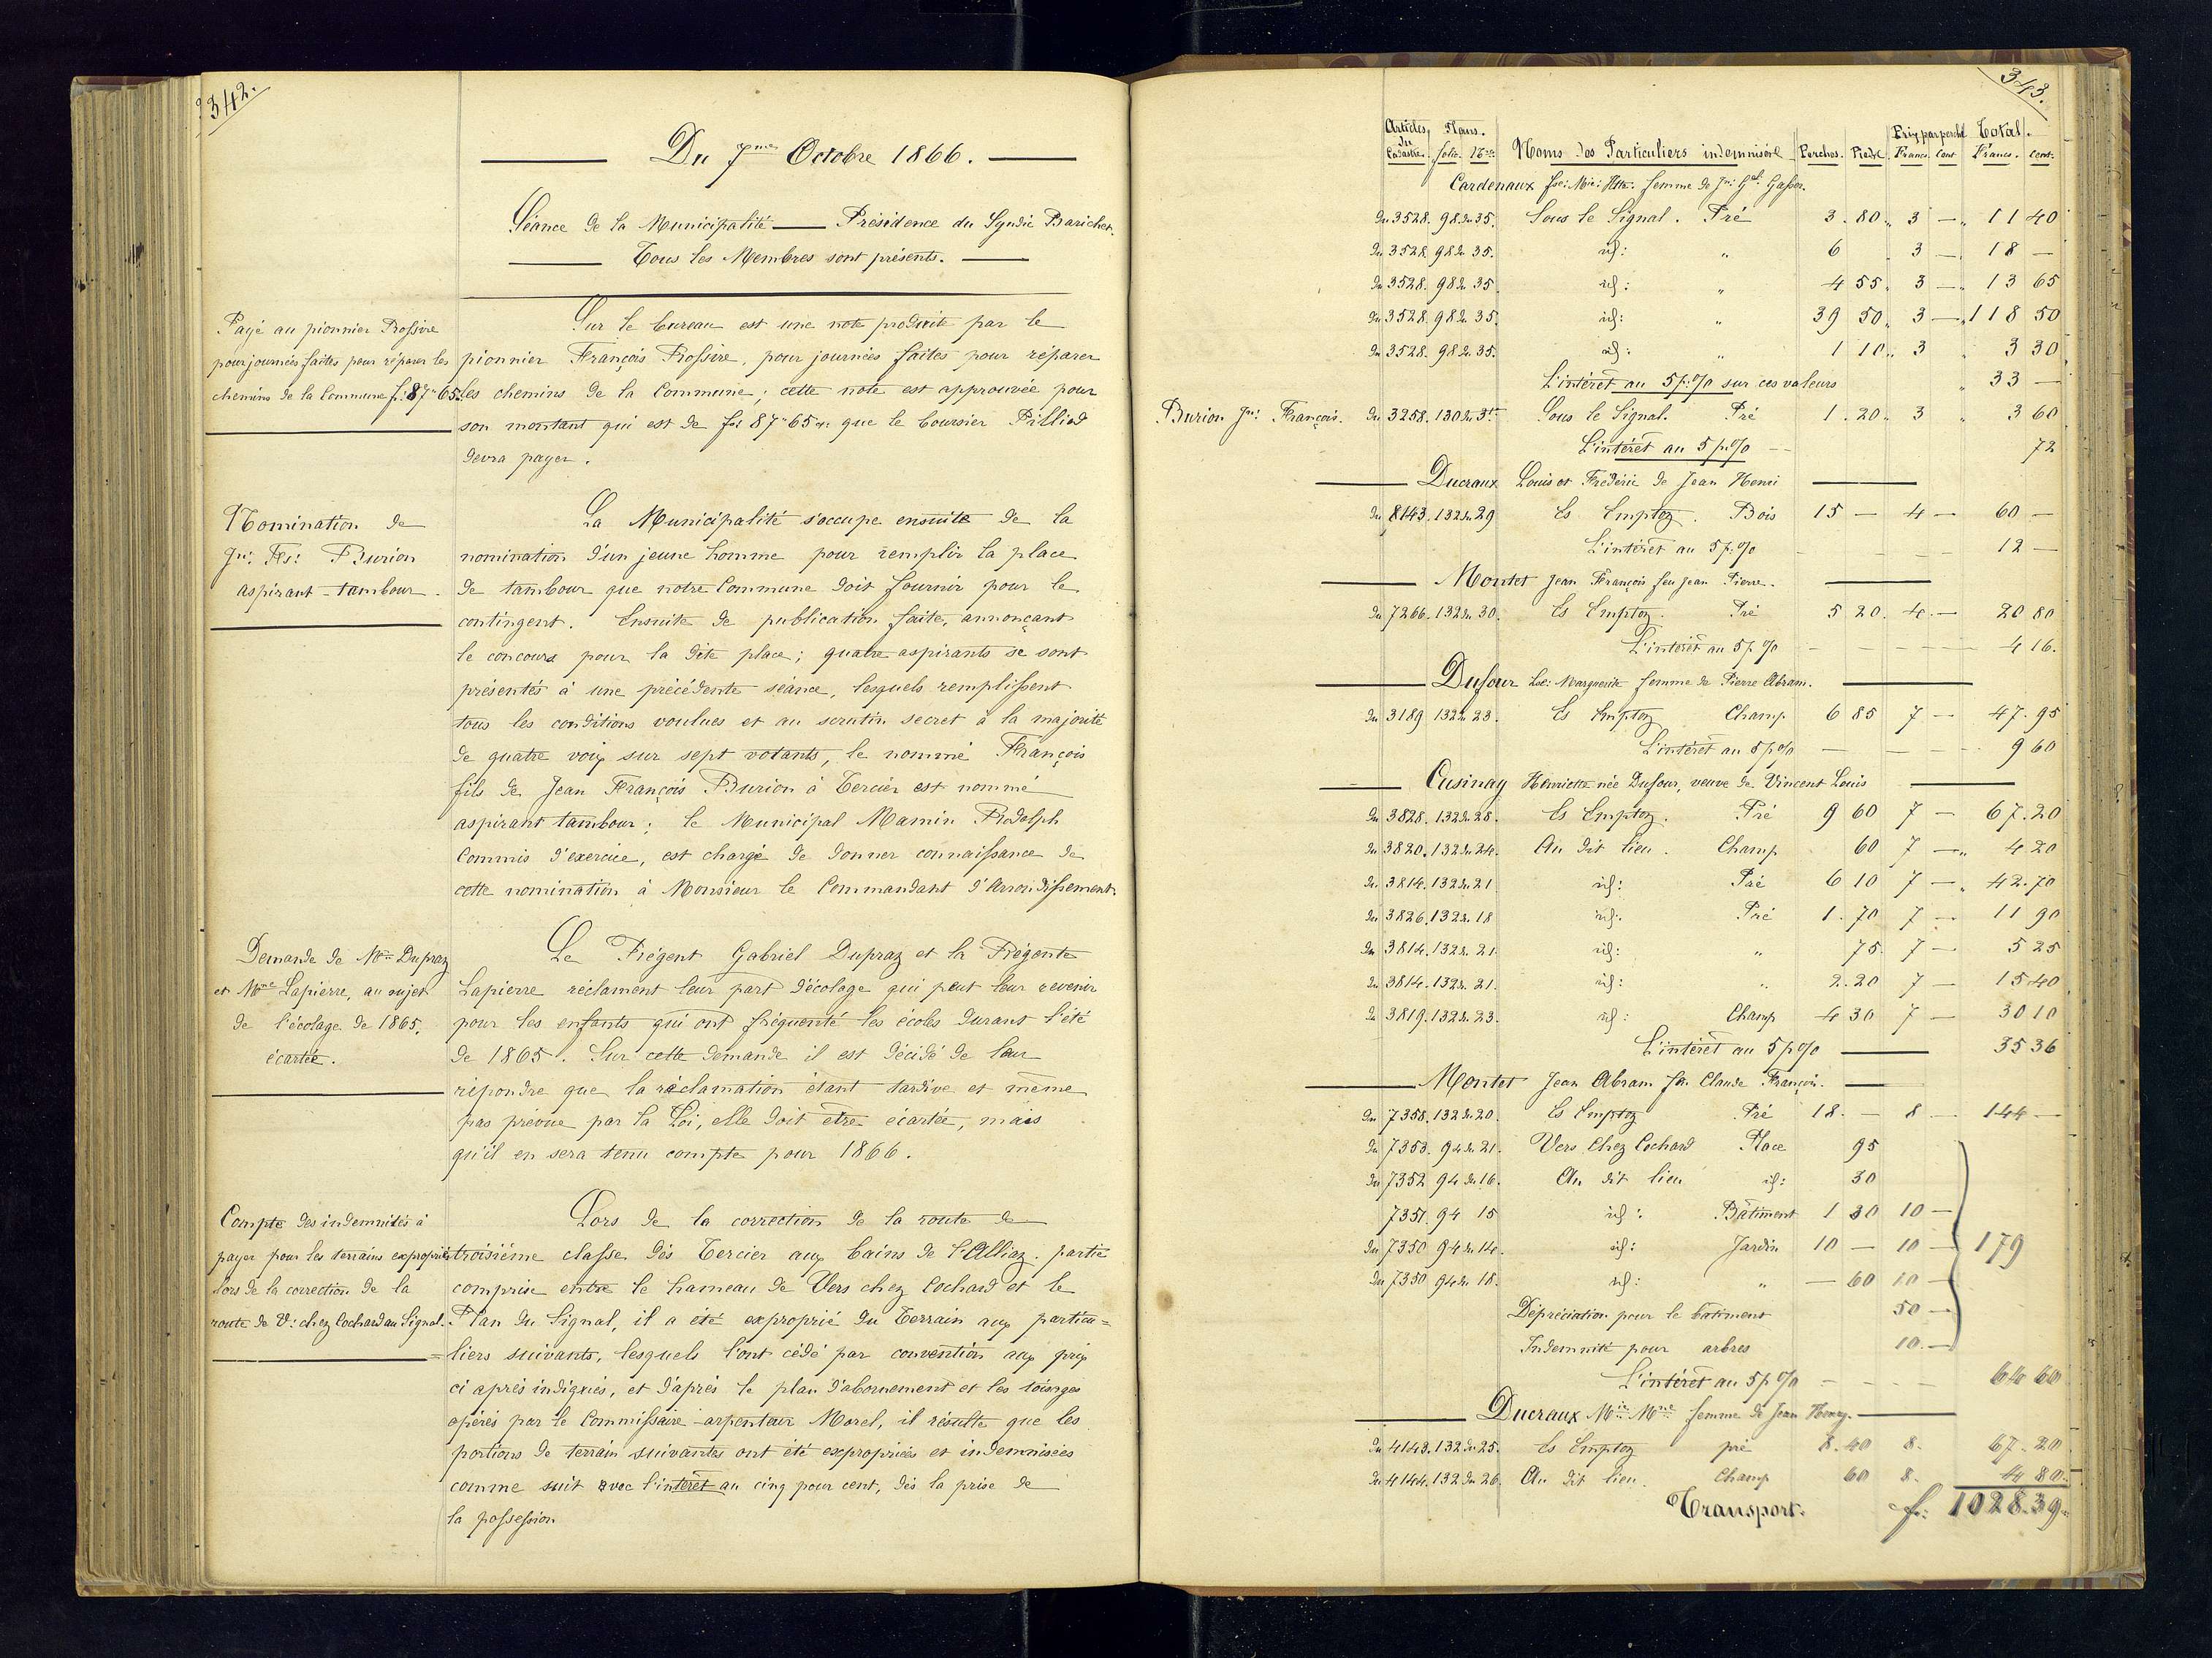 342.
Du 7me Octobre 1866.
Séance de la Municipalité — Présidence du Syndic Baricher.
Tous les Membres sont présents.
Payé au pionnier Rossire
pour journées faites pour réparer les
chemins de la Commune f. 87" 65.
Sur le bureau est une note produite par le
pionnier François Rossire, pour journées faites pour réparer
les chemins de la Commune ; cette note est approuvée pour
son montant qui est de frs 87" 65 que le boursier Pilliod
devra payer.
Nomination de
Jn: Fs: Burion
aspirant-tambour.
La Municipalité s'occupe ensuite de la
nomination d'un jeune homme pour remplir la place
de tambour que notre Commune doit fournir pour le
contingent. Ensuite de publication faite, annonçant
le concours pour la dite place ; quatre aspirants se sont
présentés à une précédente séance, lesquels remplissent
tous les conditions voulues et au scrutin secret à la majorité
de quatre voix sur sept votants, le nommé François
fils de Jean François Burion à Tercier est nommé
aspirant tambour ; le Municipal Mamin Rodolph
Commis d'exercice, est chargé de donner connaissance de
cette nomination à Monsieur le Commandant d'Arrondissement.
Demande de Mr Dupraz
et Mme Lapierre, au sujet
de l'écolage de 1865.
écartée.
Le Régent Gabriel Dupraz et la Régente
Lapierre réclament leur part d'écolage qui peut leur revenir
pour les enfants qui ont fréquenté les écoles durant l'été
de 1865. Sur cette demande il est décidé de leur
répondre que la réclamation étant tardive et même
pas prévue par la Loi, elle doit être écartée, mais
qu'il en sera tenu compte pour 1866.
Compte des indemnités à
payer pour les terrains expropriés
lors de la correction de la
route de V: chez Cochard au Signal.
Lors de la correction de la route de
troisième classe dès Tercier aux bains de l'Alliaz, partie
comprise entre le hameau de Vers chez Cochard et le
Plan du Signal, il a été exproprié du Terrain aux particu=
=liers suivants, lesquels l'ont cédé par convention aux prix
ci après indiqués, et d'après le plan d'abornement et les toisages
opérés par le Commissaire-arpenteur Morel, il résulte que les
portions de terrain suivantes ont été expropriées et indemnisées
comme suit avec l'intérêt au cinq pour cent, dès la prise de
la possession
343.
Articles du Cadastre. Plans. folio. No Noms des Particuliers indemnisés Perches. Pieds. Prix par perche Francs. Cent Total. Francs. Cent.
Cardenaux fse: Mie: Htte: femme de Jn: Gel: Gasser.
du 3528. 98. du 35. Sous le Signal. Pré 3. 80 " 3 — " 11 40
du 3528. 98 du 35. id: " 6 3 — 18 —
du 3528. 98 du 35 id: " 4 55 " 3 — " 13 65
du 3528. 98 du 35. id: " 39 50 " 3 — " 118 50
du 3528. 98 du 35. id: " 1 10 " 3 " 3 30
L'intérêt au 5 p: % sur ces valeurs " 33 —
Burion Jn: François. du 3258. 130 du 3 Sous le Signal. Pré 1. 20 " 3 " 3 60
L'intérêt au 5 p. % — 72
Ducraux Louis et Frédéric de Jean Henri
du 8143. 132 du 29 Es Emptoz. Bois 15 — 4 — 60 —
L'intérêt au 5 p: % 12 —
Montet Jean François feu Jean Pierre.
du 7266. 132 du 30. Es Emptoz. Pré 5 20. 4. — 20 80
L'intérêt au 5 p % 4 16.
Dufour Lse: Marguerite femme de Pierre Abram.
du 3189 132 du 23. Es Emptoz Champ 6 85 7 — 47. 95
L'intérêt au 5 p % 9 60
Cusinay Henriette née Dufour, veuve de Vincent Louis
du 3828. 132 du 28. Es Emptoz. Pré 9 60 7 — 67. 20
du 3820. 132 du 24. Au dit lieu. Champ 60 7 — " 4 20
du 3814. 132 du 21 id: Pré 6 10 7 — " 42. 70
du 3826. 132 du 18 id: Pré 1. 70 7 — 11 90
du 3814. 132 du 21. id: " 75. 7 — 5 25
du 3814. 132 du 21. id: " 2. 20 7 — 15 40
du 3819. 132 du 23. id: Champ 4 30 7 — 30 10
L'intérêt au 5 p % 35 36
Montet Jean Abram feu Claude François.
du 7358. 132 du 20. Es Emptoz Pré 18. — 8 — 144 —
du 7353. 94 du 21. Vers Chez Cochard Place 95
du 7352 94 du 16. Au dit lieu id: 30
7351. 94 15 id: Bâtiment 1 30 10 —
du 7350 94 du 14. id: Jardin 10 — 10 — 179
du 7350 94 du 18. id: " — 60 10 —
Dépréciation pour le bâtiment 50 —
Indemnité pour arbres 10. —
L'intérêt au 5 p % 64 60
Ducraux Mie Mne femme de Jean Henry.
du 4143. 132 du 25. Es Emptoz pré 8. 40 8. 67. 20
du 4144. 132 du 26. Au dit lieu. Champ 60 8. 4 80.
Transport. fr: 1028.39